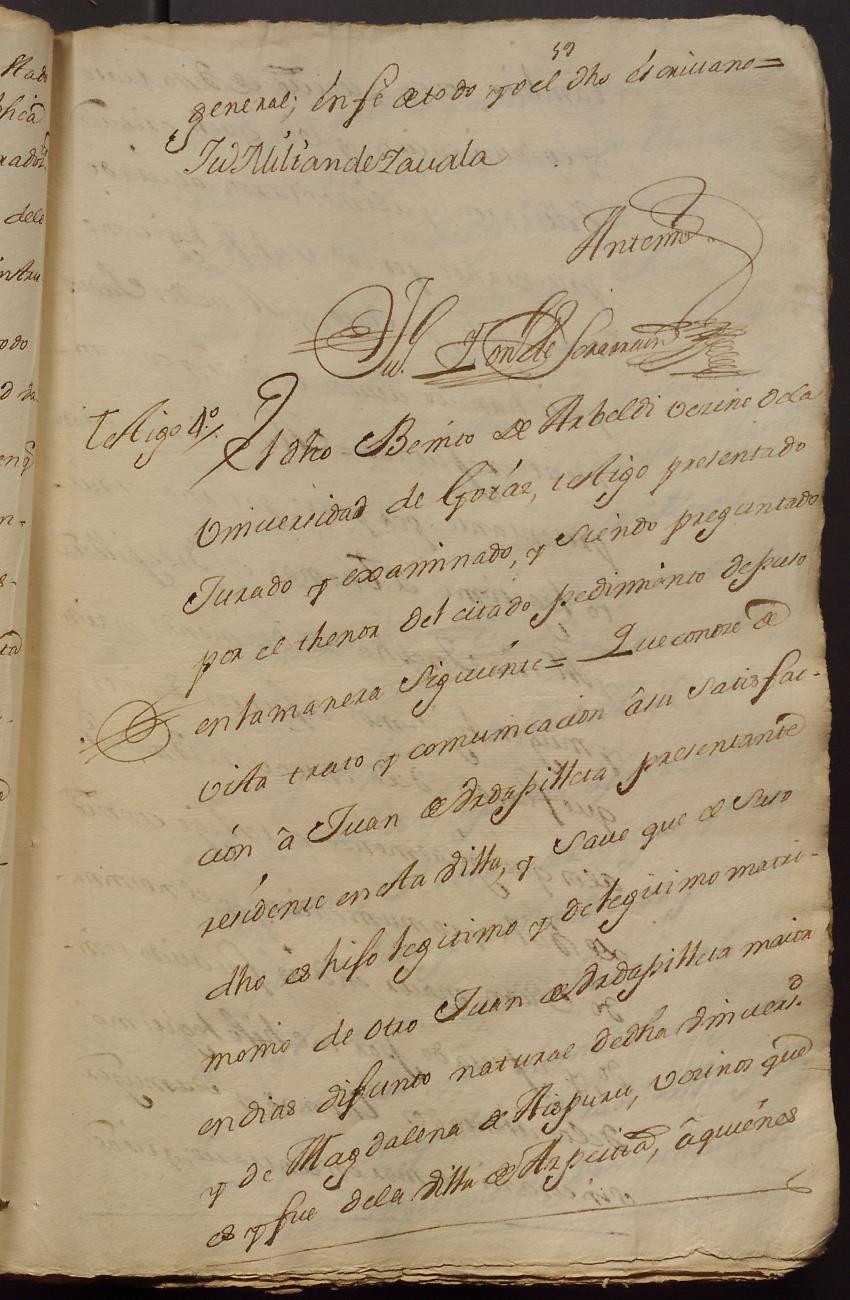 59
general; en fê de todo yo el dho escriuano=
Ju Milian de Zauala
Antemi
Ju.
Testigo 4º. El dho Benito de Arbeldi vezino de la
Vniuersidad de Goiáz, testigo presentado
Jurado y exsaminado, y siendo preguntado
por el thenor del citado pedimiento depuso
en la manera siguiente= Que conoze de
vista trato y comunicacion â su satisfac-
ción â Juan de Ardapilleta presentante
residente en esta Villa, y saue que el suso
dho es hijo legitimo y de legitimo matri-
monio de otro Juan de Ardapilleta maior
en dias difunto natural de dha Vniuersd.
y de Magdalena de Aispuru, vezinos que
es y fue de la Villa de Azpeitia, â quiénes